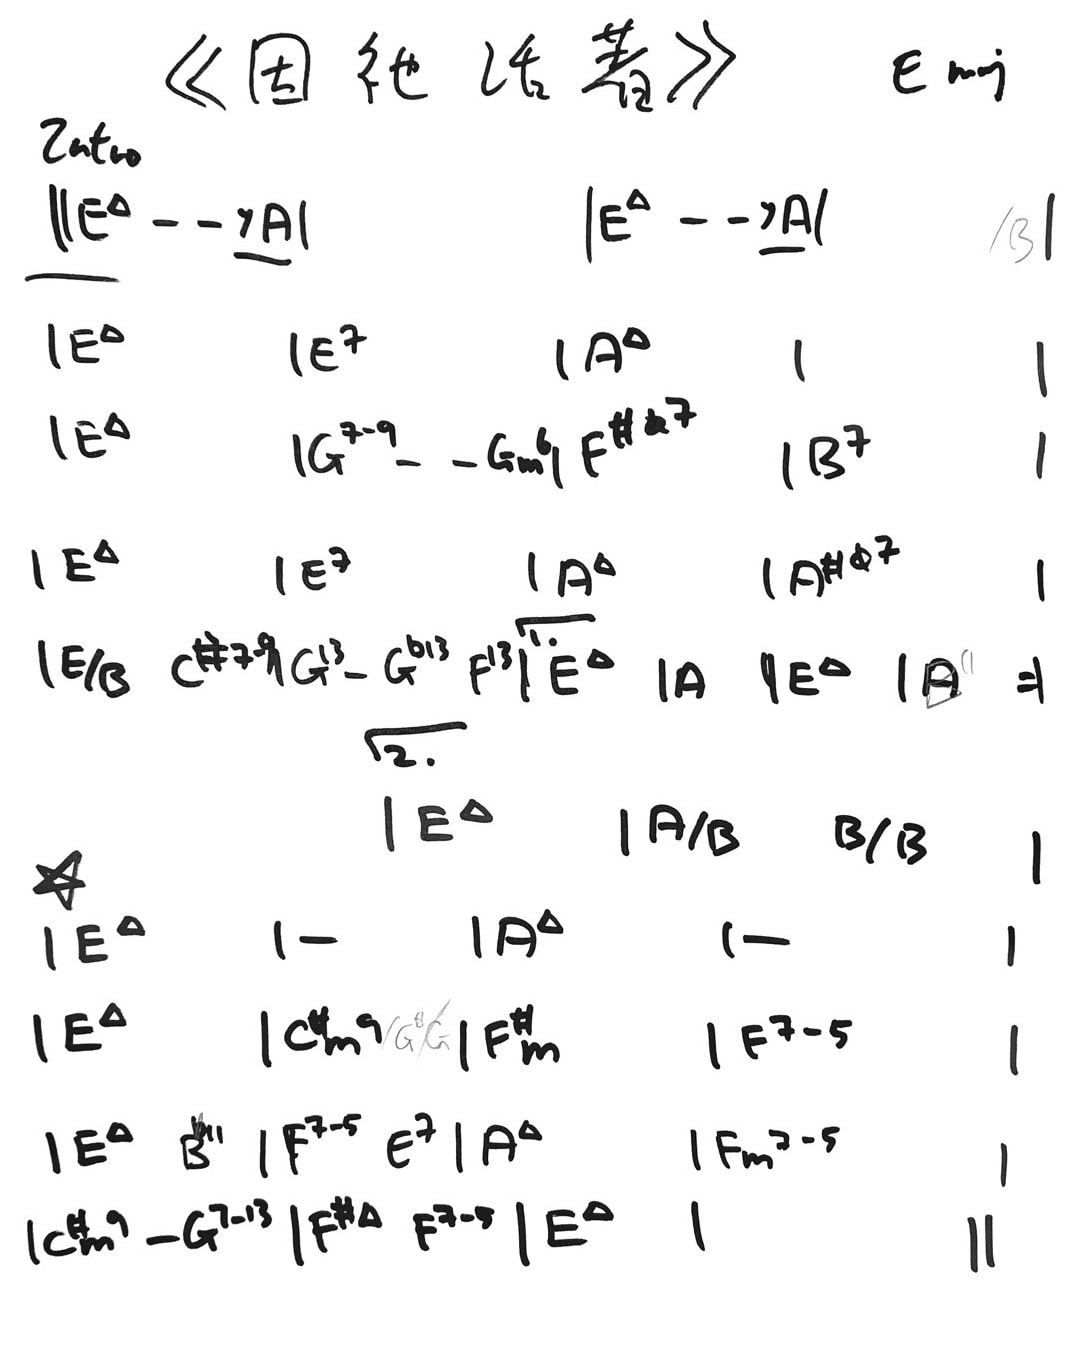 《因他活着》 E maj
Intro
‖E△ - - 𝄾A| |E△ - - 𝄾A| /B |
|E△ |E7 |A△ | |
|E△ |G7-9 - - Gm6| F#ø7 |B7 |
|E△ |E7 |A△ |A#ø7 |
|E/B C#7-9|G13 - Gb13 F13|1. E△ |A |E△ |A :|
2.
|E△ |A/B B/B |
☆
|E△ |- |A△ |- |
|E△ |C#m9 /G# /G |F#m |F7-5 |
|E△ B11 |F7-5 E7 |A△ |Fm7-5 |
|C#m9 - G7-13 |F#△ F7-5 |E△ | ‖